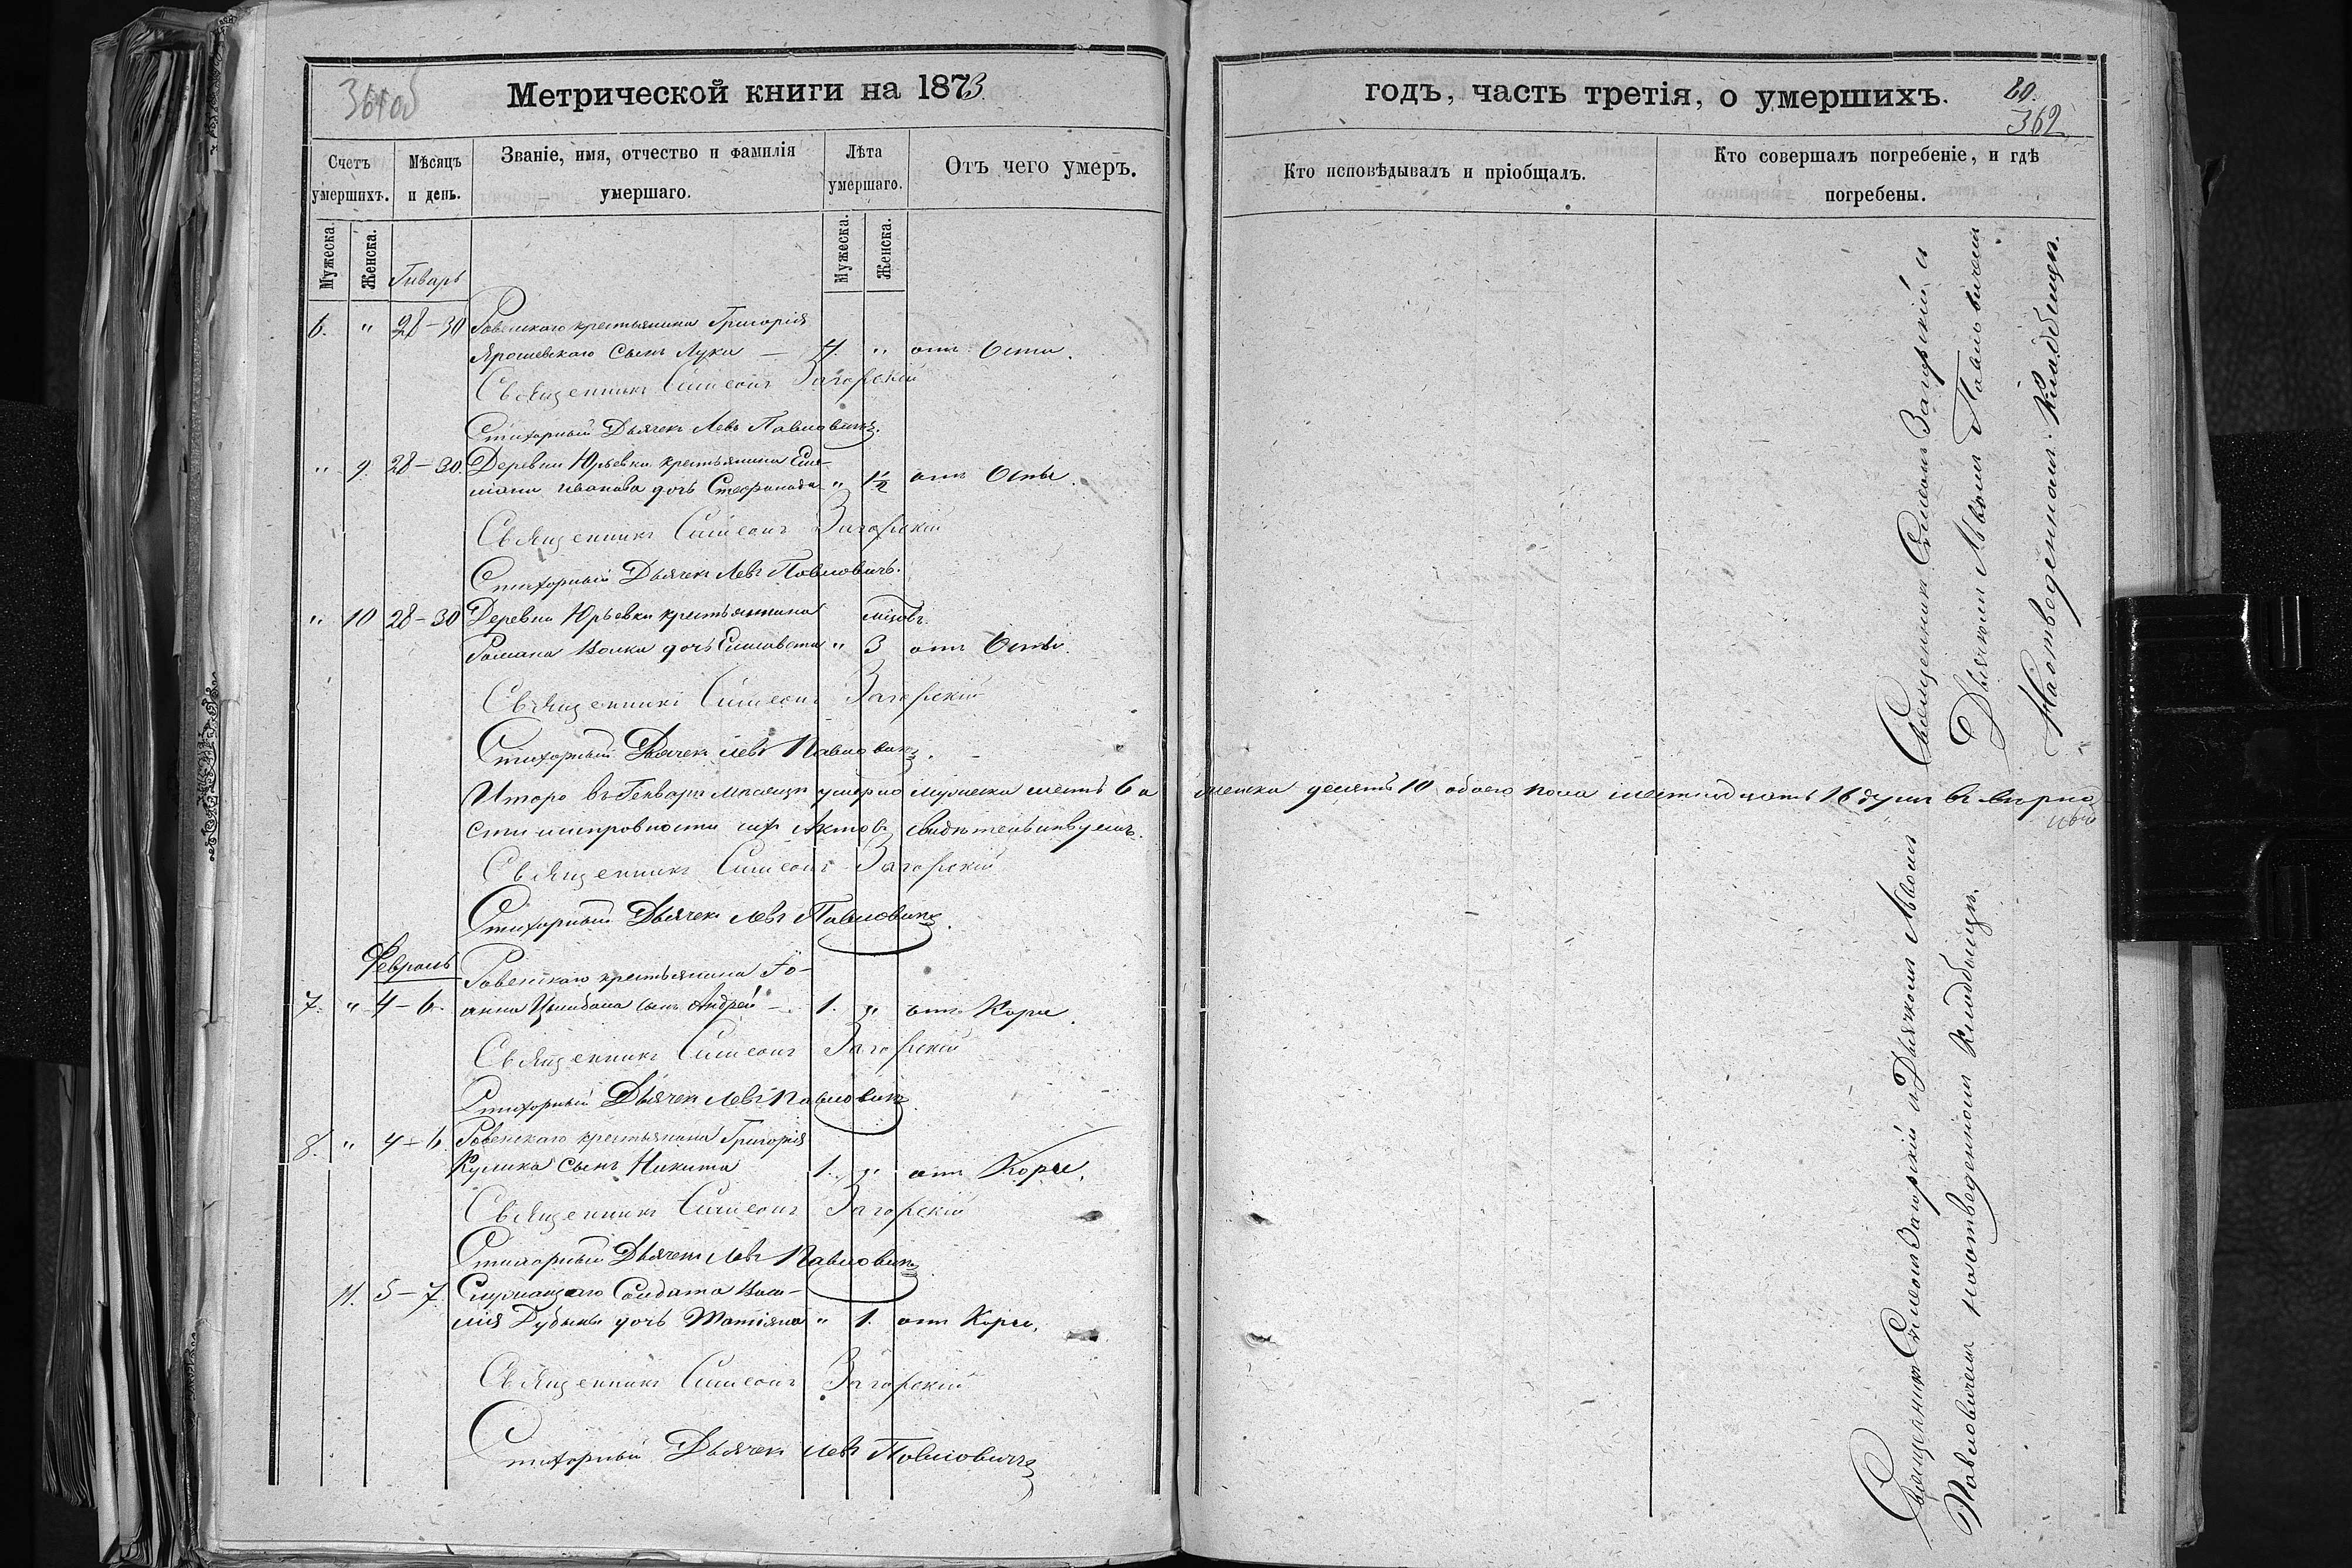 361об
Метрической книги на 1873
Счетъ умершихъ.
Мѣсяцъ и день.
Званіе, имя, отчество и фамилія умершаго.
Лѣта умершаго.
Отъ чего умеръ.
Мужеска.
Женска.
Мужеска.
Женска.
Генварь
6. " 28-30 Ровенскаго крестьянина Григорія
Ярошевскаго сынъ Лука — 4. " отъ Оспы.
Священникъ Симеонъ Загорскій
Стихорный Дьячекъ Левъ Павловичъ.
" 9. 28-30 Деревни Юрьевки крестьянина
Иванова дочь Стефанида " 1½ отъ Оспы.
Священникъ Симеонъ Загорскій
Стихорный Дьячекъ Левъ Павловичъ.
" 10 28-30 Деревни Юрьевки крестьянина мѣсов.
Романа Волка дочь Елисавета " 3 отъ Оспы.
Священникъ Симеонъ Загорскій
Стихорный Дьячекъ Левъ Павловичъ.
Итого въ Генварѣ мѣсяцѣ умерло мужеска шесть 6 а женска десять 10 обоего пола шестнадцать 16 душъ въ вѣрно
сти актовъ свидѣтельствуемъ.
Священникъ Симеонъ Загорскій
Стихорный Дьячекъ Левъ Павловичъ.
Февраль
Ровенскаго крестьянина Іо-
7. " 4-6. анна Цымбала сынъ Андрей — 1. " отъ Кори.
Священникъ Симеонъ Загорскій
Стихорный Дьячекъ Левъ Павловичъ
8. " 4-6 Ровенскаго крестьянина Григорія
Кулика сынъ Никита 1. " отъ Кори.
Священникъ Симеонъ Загорскій
Стихорный Дьячекъ Левъ Павловичъ
11. 5-7. Служащаго Солдата Васи-
лія дочь Татіяна " 1. отъ Кори.
Священникъ Симеонъ Загорскій
Стихорный Дьячекъ Левъ Павловичъ
годъ, часть третія, о умершихъ.
80.
362
Кто исповѣдывалъ и пріобщалъ.
Кто совершалъ погребеніе, и гдѣ погребены.
Священникъ Симеонъ Загорскій и
Дьячкомъ Львомъ Павловичемъ
На отведенномъ Кладбищѣ.
Священникъ Симеонъ Загорскій и Дьячкомъ Львомъ
Павловичемъ на отведенномъ Кладбищѣ.